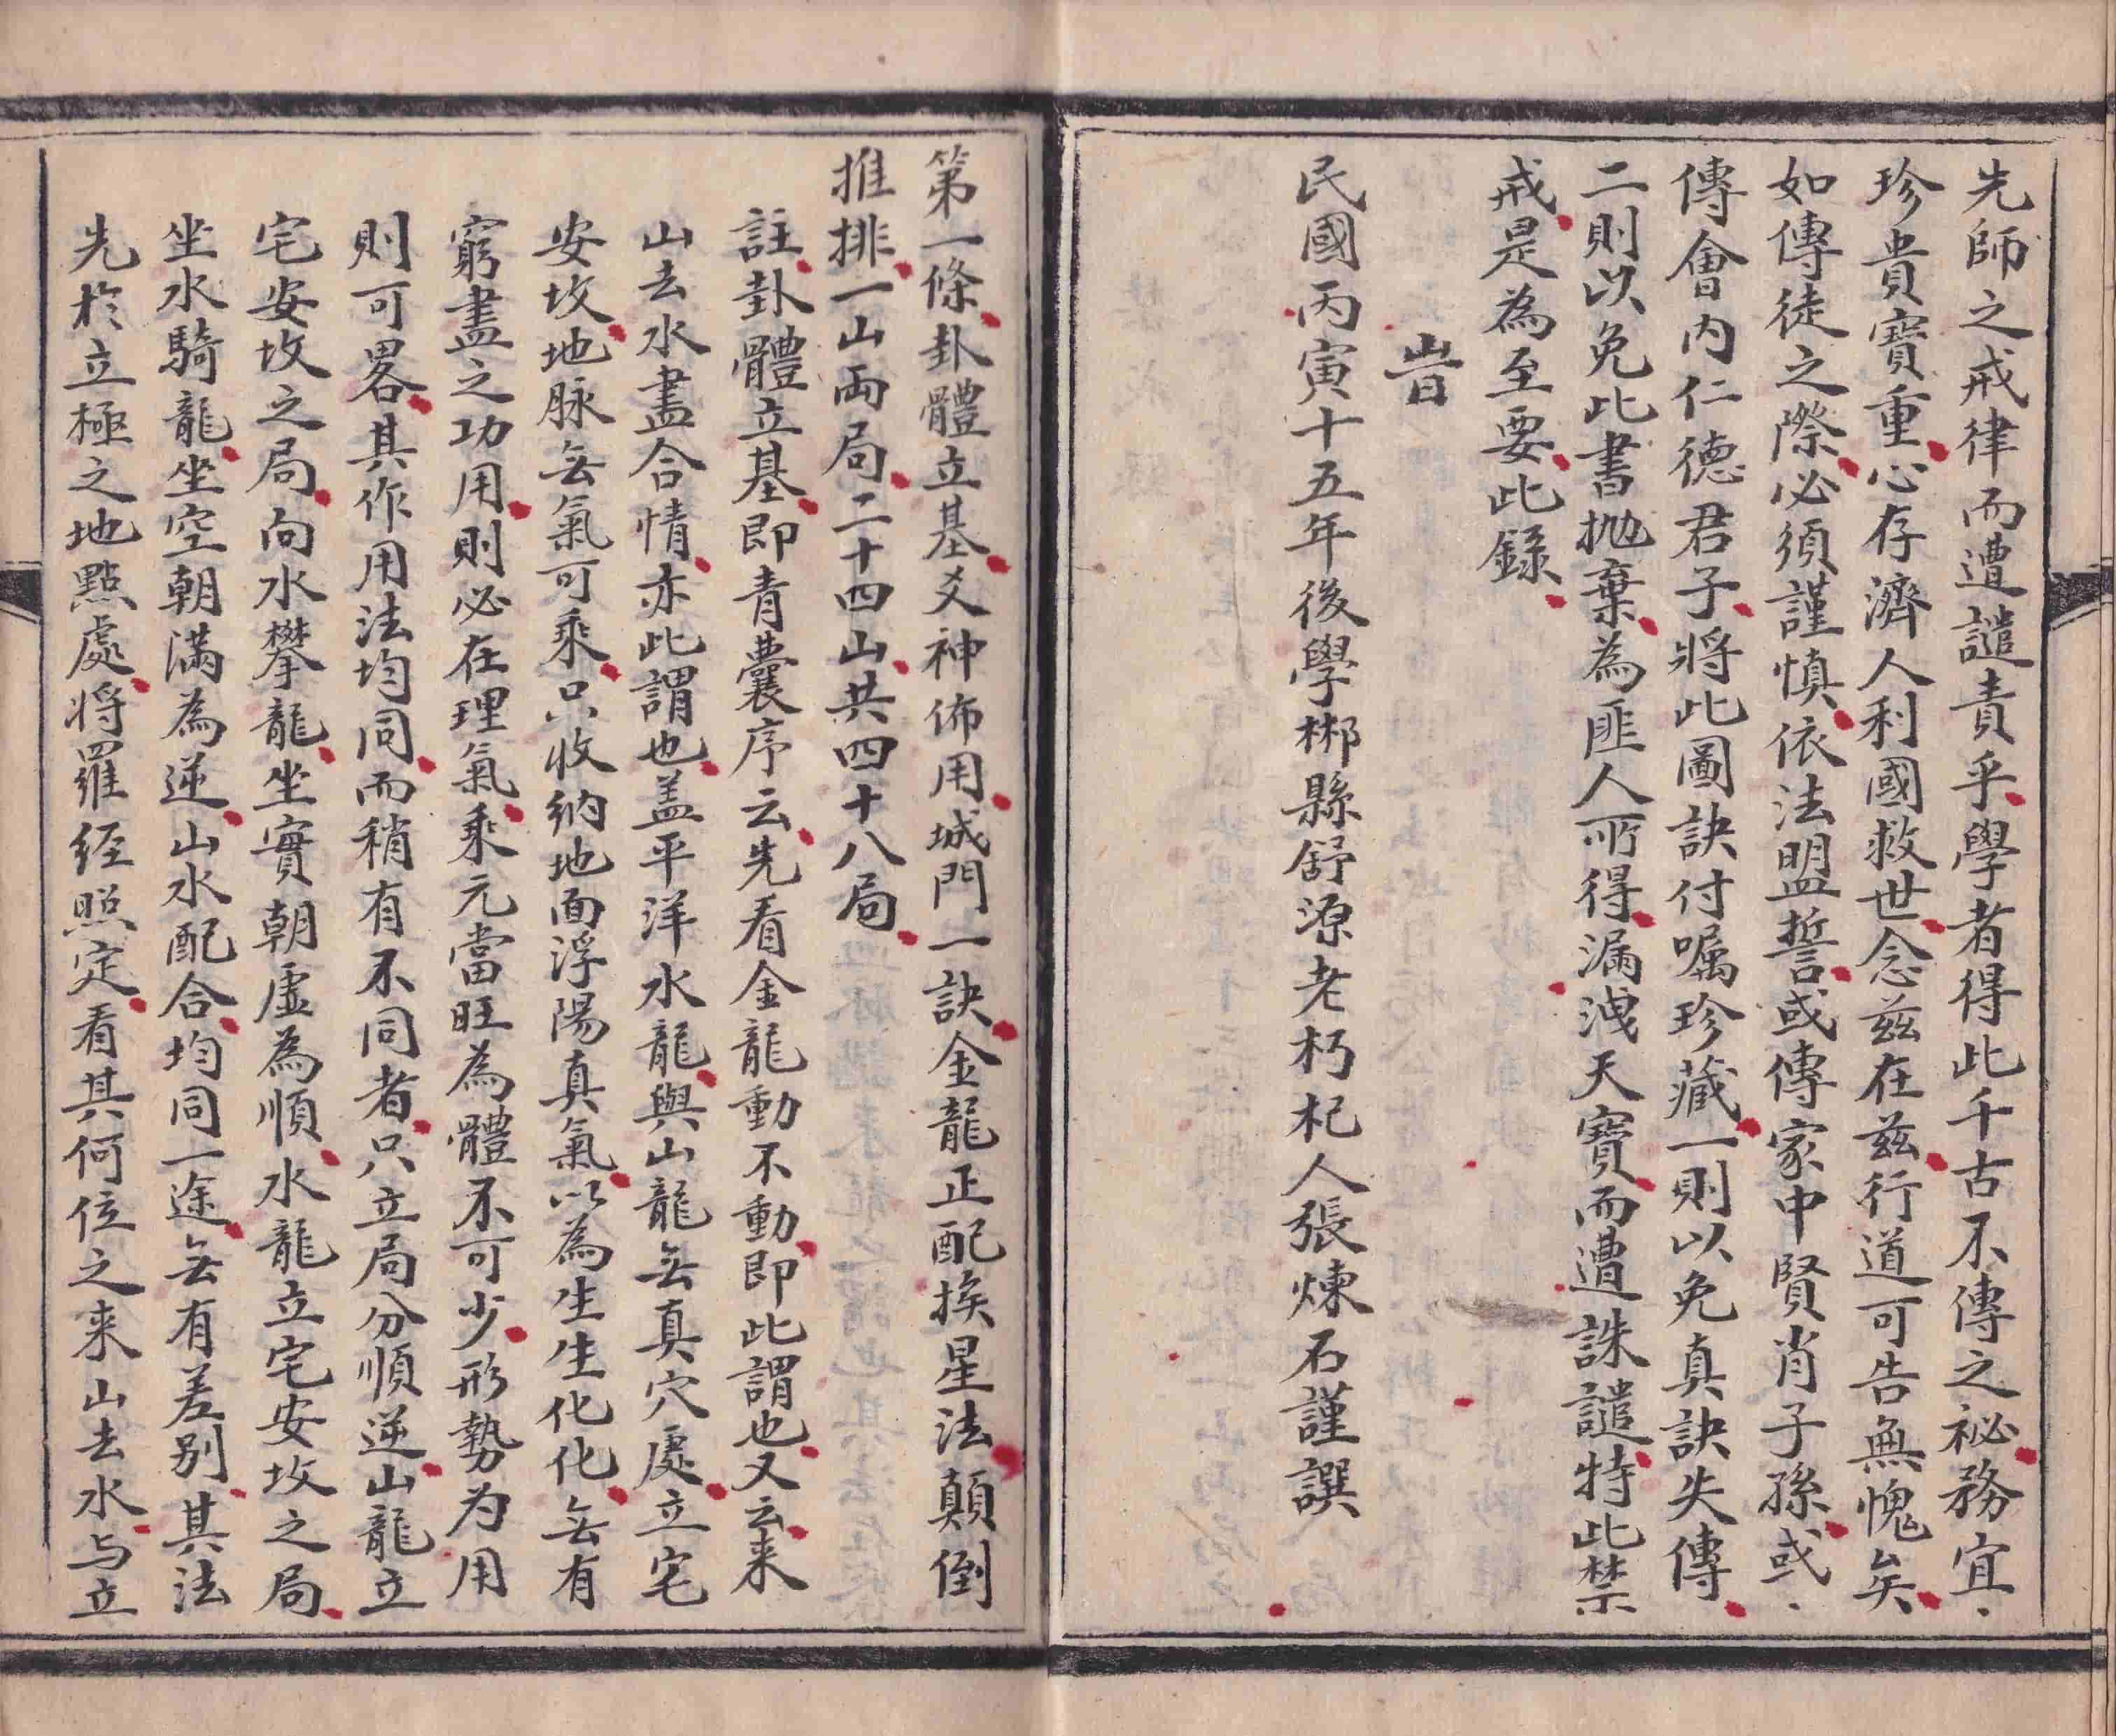 先師之戒律而遭譴責乎學者得此千古不傳之祕務宜
珍貴寶重心存濟人利國救世念茲在茲行道可告無愧矣
如傳徒之際必須謹慎依法盟誓或傳家中賢肖子孫或
傳會内仁德君子將此圖訣付囑珍藏一則以免真訣失傳
二則以免此書抛棄為匪人所得漏洩天寶而遭誅譴特此禁
戒是為至要此錄
旹
民國丙寅十五年後學郴縣舒源老朽杞人張煉石謹譔
第一條卦體立基爻神佈用城門一訣金龍正配挨星法顛倒
推排一山両局二十四山共四十八局
註卦體立基即青囊序云先看金龍動不動即此謂也又云来
山去水盡合情亦此謂也盖平洋水龍與山龍無真穴處立宅
安坟地脉無氣可乘只收納地面浮陽真氣以為生生化化無有
窮盡之功用則必在理氣乘元當旺為體不可少形勢为用
則可畧其作用法均同而稍有不同者只立局分順逆山龍立
宅安坟之局向水攀龍坐實朝虛為順水龍立宅安坟之局
坐水騎龍坐空朝滿為逆山水配合均同一途無有差别其法
先於立極之地點處将羅经照定看其何位之来山去水与立